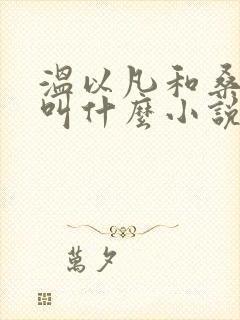 溫以凡和桑
叫什麼小說
萬夕